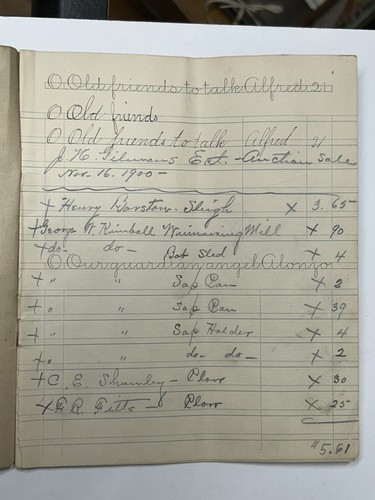 O Old friends to talk Alfred 21
O Old friends
O Old friends to talk Alfred 21
J. H. Gilman's Est. - Auction Sale
Nov. 16. 1900 -
+ Henry Barstow - Sleigh x 3.65
+ George W. Kimball Winnowing Mill x 90
+ do - do - Bob Sled x 4
O Our guardian angel Alonzo
+ " " Sap Pan x 2
+ " " Sap Pan x 39
+ " " Sap Holder x 4
+ " " do - do - x 2
+ C. E. - Plow x 30
+ Fitts - Plow x 25
"5.61